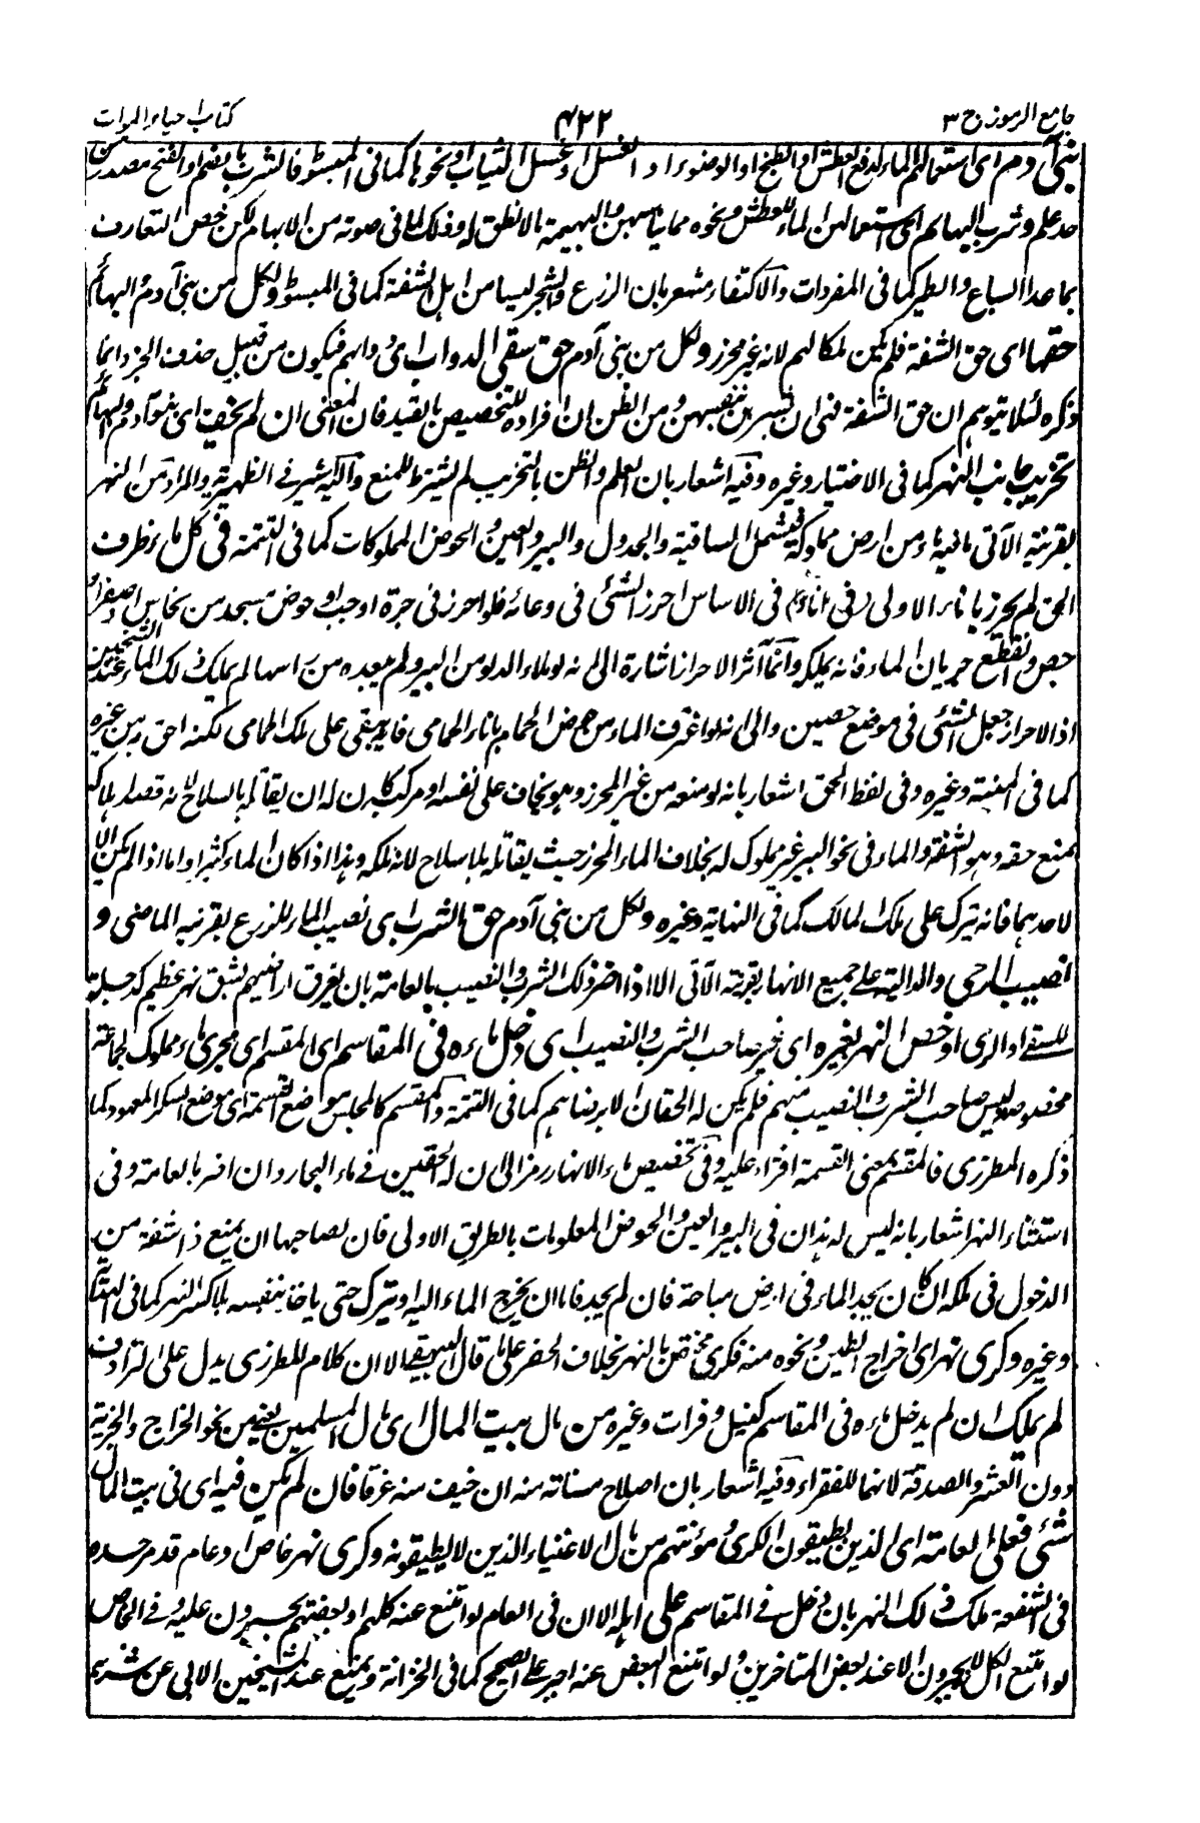 جامع الرموز ج ٣
٤٢٢
كتاب احياء الموات
بنى آدم اى استعمالهم الماء لدفع العطش او الطبخ او الوضوء او الغسل او غسل الثياب او نحوها كما فى المبسوط فالشرب بالضم او الفتح مصدر من
حد علم وشرب البهائم اى استعمالهن الماء للعطش ونحوه مما يناسبهن والبهيمة ما لا نطق له وذلك لما فى صوته من الابهام لكن خص التعارف
بما عدا السباع والطير كما فى المفردات والاكتفاء مشعر بان الزرع والشجر ليسا من اهل الشفة كما فى المبسوط ولكل من بنى آدم والبهائم
حقها اى حق الشفة فلم يكن ملكا لهم لانه غير محرز ولكل من بنى آدم حق سقى الدواب اى دوابهم فيكون من قبيل حذف الجزء انما
ذكره لئلا يتوهم ان حق الشفة فى ان شربن بنفسهن ومن الظن ان افراده للتخصيص بالقيد فان المعنى ان لم يخف اى بنو آدم والبهائم
تخريب جانب النهر كما فى الاختيار وغيره وفيه اشعار بان العلم والظن بالتخريب لم يشترط للمنع واليه يشير فى الظهيرية والمراد من النهر
بقرينة الآتى ما فيه ماء من ارض مملوكة فيشمل الساقية والجدول والبير والعين والحوض المملوكات كما فى التتمة فى كل ماء ظرف
الحق لم يحرز باناء الاولى (فى اناء) فى الاساس احرز الشئ فى وعائه فلو احرز فى جرة او جب او حوض مسجد من نحاس او صفر او
جص وانقطع جريان الماء فانه يملكه وانما آثر الاحراز اشارة الى انه لو ملاء الدلو من البير ولم يبعده من راسها لم يملك ذلك الماء عند الشيخين
اذ الاحراز جعل الشئ فى موضع حصين والى انه لو اغترف الماء من حوض الحمام باناء الحمامى فانه يبقى على ملك الحمامى لكنه احق به من غيره
كما فى المنية وغيره وفى لفظ الحق اشعار بانه لو منعه من غير المحرز وهو يخاف على نفسه او مركبه كان له ان يقاتله بالسلاح لانه قصد اهلاكه
بمنع حقه وهو الشفة والماء فى نحو البير غير مملوك له بخلاف الماء المحرز حيث يقاتله بلا سلاح لانه ملكه وهذا اذا كان الماء كثيرا واما اذا لم يكن الا
لاحدهما فانه يترك على ملك المالك كما فى النهاية وغيره ولكل من بنى آدم حق الشرب اى نصيب الماء للزرع بقرينة الماضى و
نصيب الرحى والدالية على جميع الانهار بقرينة الآتى الا اذا اضر ذلك الشرب والنصيب بالعامة بان يغرق اراضيهم بشق نهر عظيم كدجلة
للسقى او الرى او خص النهر بغيره اى غير صاحب الشرب والنصيب اى دخل ماءه فى المقاسم اى المقسم اى مجرى ماء مملوك لجماعة
مخصوصة وليس صاحب الشرب والنصيب منهم فلم يكن له الحقان الا برضاهم كما فى التتمة والمقسم كالمجلس موضع القسمة اى موضع السكر المعهود كما
ذكره المطرزى فالمقسم بمعنى القسمة افتراء عليه وفى تخصيص ماء الانهار رمز الى ان له الحقين فى ماء البحار وان اضر بالعامة وفى
استثناء النهر اشعار بانه ليس له هذان فى البير والعين والحوض المعلومات بالطريق الاولى فان لصاحبها ان يمنع ذا شفة من
الدخول فى ملكه ان كان يجد الماء فى ارض مباحة فان لم يجد فاما ان يخرج الماء اليه او يترك حتى ياخذ بنفسه بلا كسر النهر كما فى
وغيره وكرى نهر اى اخراج الطين ونحوه منه فكرى مختص بالنهر بخلاف الحفر على ما قال البيهقى الا ان كلام المطرزى يدل على الترادف
لم يملك ان لم يدخل ماءه فى المقاسم كنيل وفرات وغيره من مال بيت المال اى مال المسلمين يعنى من نحو الخراج والجزية
دون العشر والصدقة لانها للفقراء وفيه اشعار بان اصلاح مسناته منه ان خيف منه غرقا فان لم يكن فيه اى فى بيت المال
شئ فعلى العامة اى الذين يطيقون الكرى ومؤنتهم من مال الاغنياء الذين لا يطيقونه وكرى نهر خاص او عام قد مر حده
فى الشفعة ملك ذلك النهر بان دخل فى المقاسم على اهله الا ان فى العام لو امتنع عنه كلهم او بعضهم يجبرون عليه وفى الخاص
لو امتنع الكل لا يجبرون الا عند بعض المتاخرين ولو امتنع البعض عنه اجبر على الصحيح كما فى الخزانة ويمنع عند الشيخين الابى عن شربه